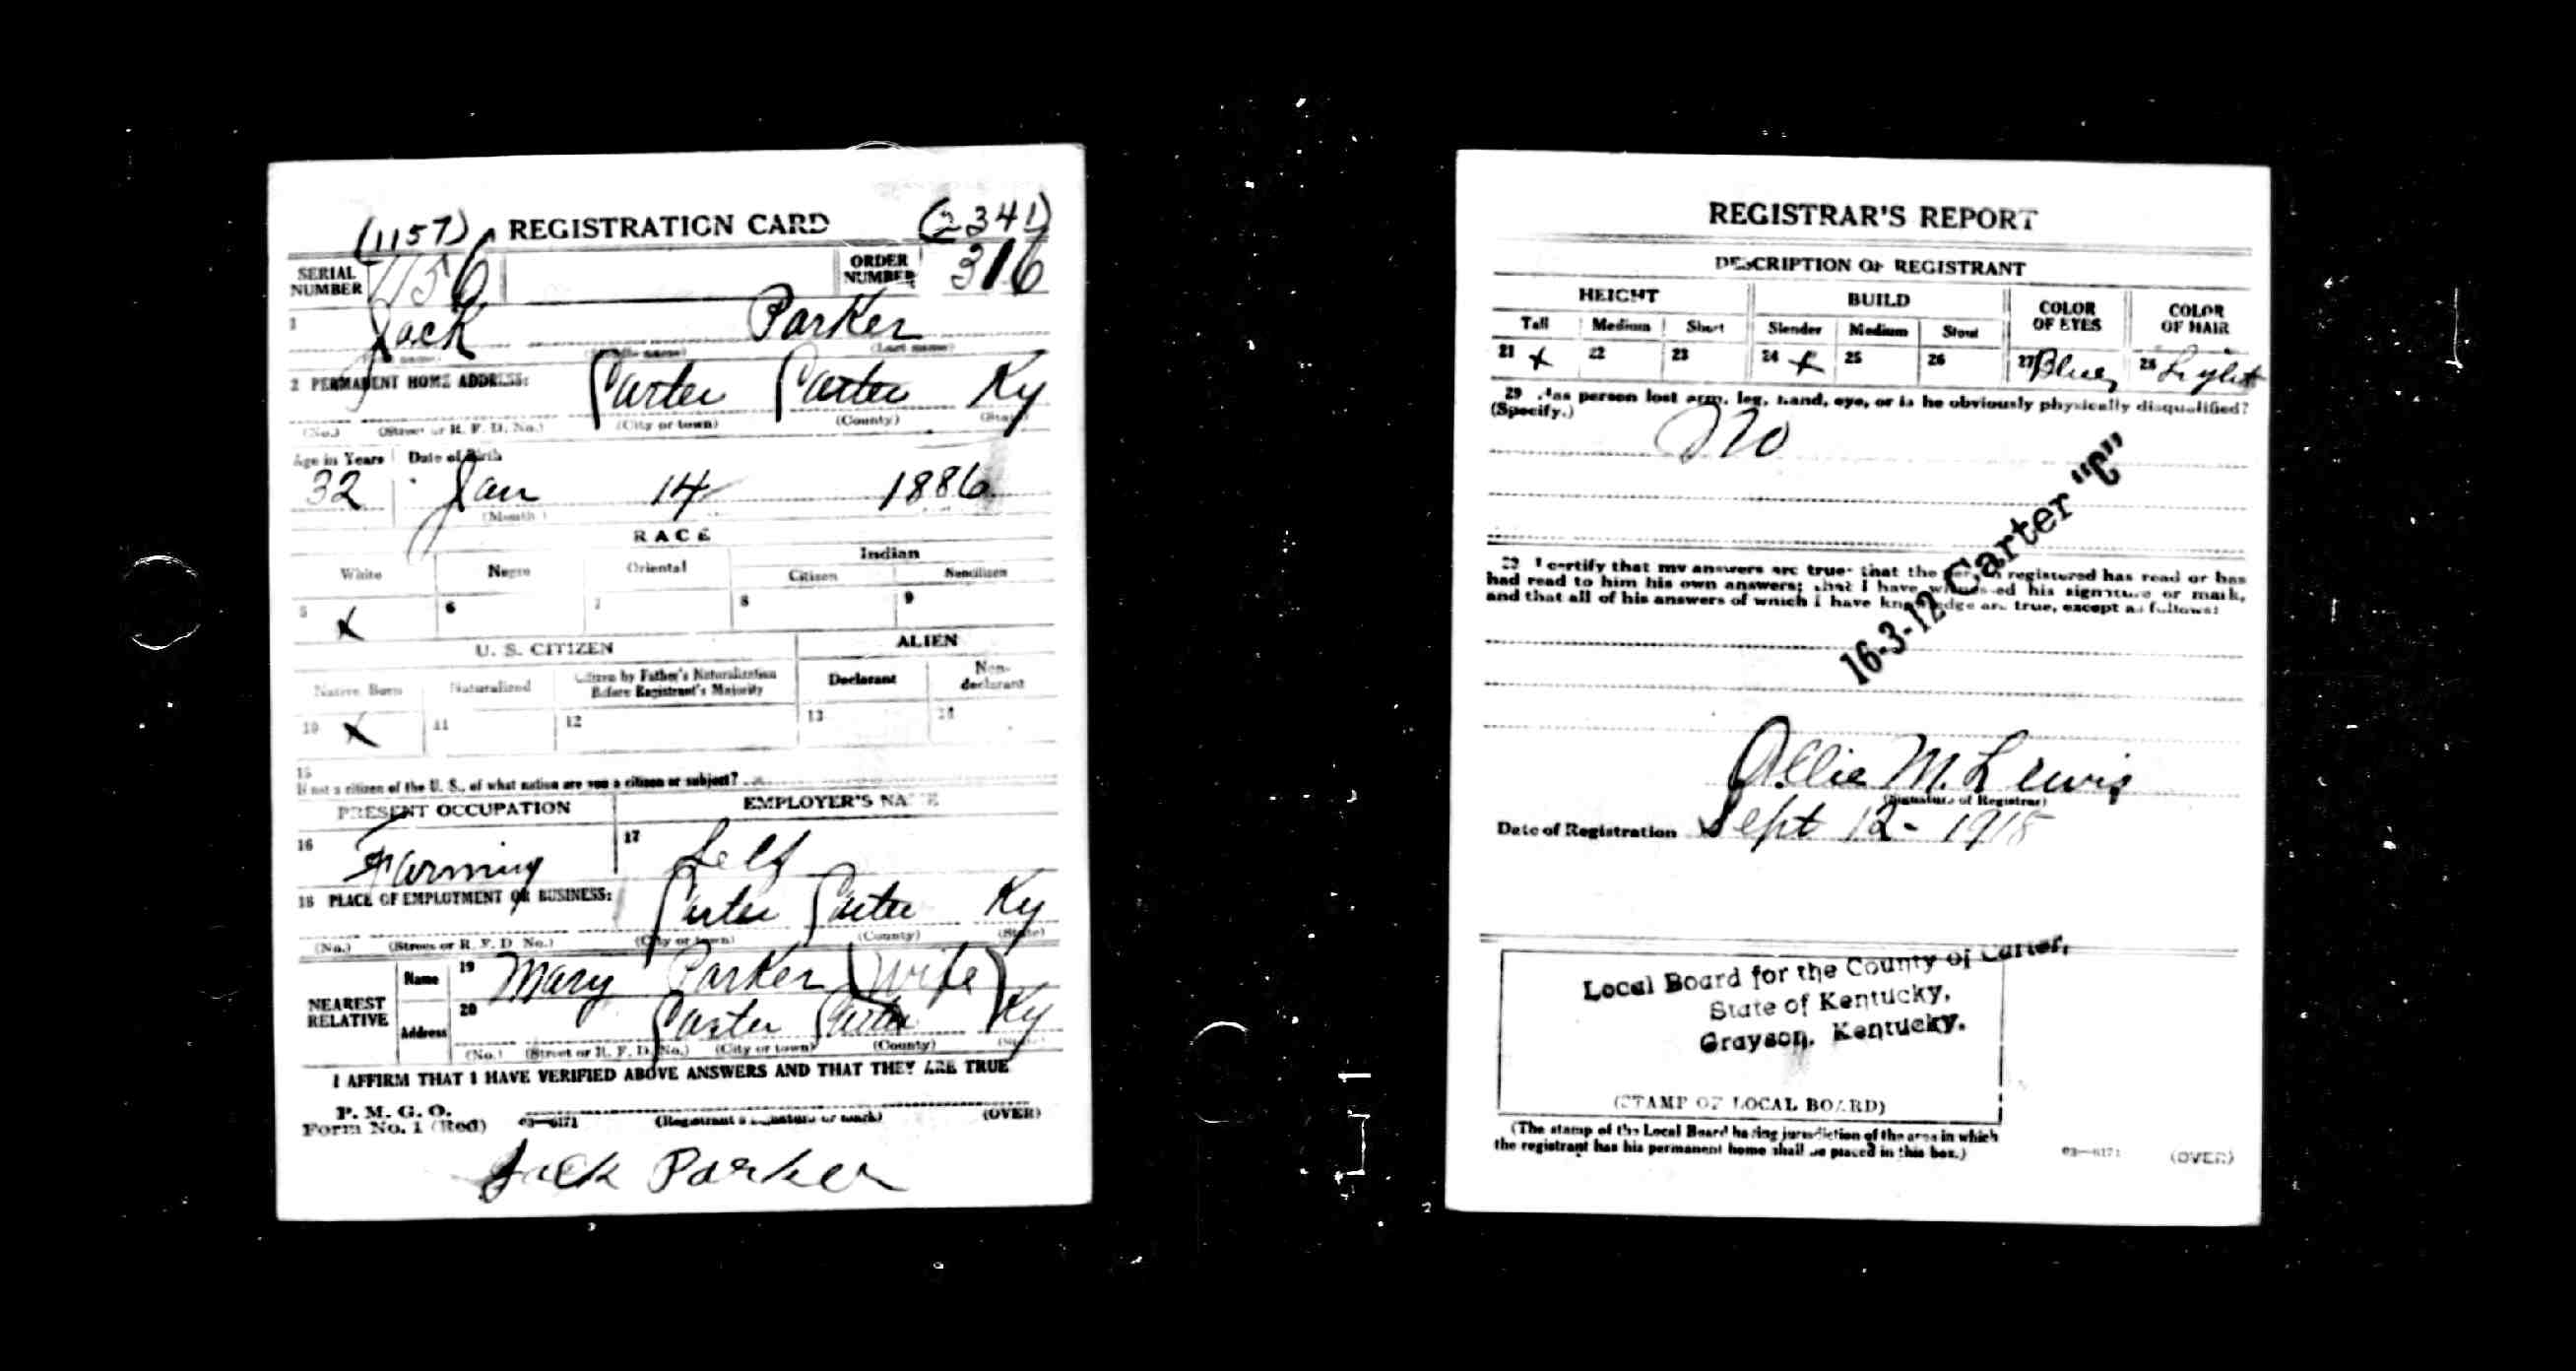 (1157) REGISTRATION CARD (2341)
SERIAL NUMBER 1156 ORDER NUMBER 316
1 Jack Parker
(Last name)
2 PERMANENT HOME ADDRESS: Carter Carter Ky
(No.) (Street or R. F. D. No.) (City or town) (County) (State)
Age in Years Date of Birth
32 Jan 14 1886
(Month)
RACE
White Negro Oriental Indian
Citizen Noncitizen
5 X 6 7 8 9
U. S. CITIZEN ALIEN
Native Born Naturalized Citizen by Father's Naturalization Before Registrant's Majority Declarant Non-declarant
10 X 11 12 13 14
15
If not a citizen of the U. S., of what nation are you a citizen or subject?
PRESENT OCCUPATION EMPLOYER'S NAME
16 Farming 17 Self
18 PLACE OF EMPLOYMENT OR BUSINESS: Carter Carter Ky
(No.) (Street or R. F. D. No.) (City or town) (County) (State)
NEAREST RELATIVE Name 19 Mary Parker (wife)
Address 20 Carter Carter Ky
(No.) (Street or R. F. D. No.) (City or town) (County) (State)
I AFFIRM THAT I HAVE VERIFIED ABOVE ANSWERS AND THAT THEY ARE TRUE
P. M. G. O.
Form No. 1 (Red) 03—6171 (Registrant's signature or mark) (OVER)
Jack Parker
REGISTRAR'S REPORT
DESCRIPTION OF REGISTRANT
HEIGHT BUILD COLOR OF EYES COLOR OF HAIR
Tall Medium Short Slender Medium Stout
21 X 22 23 24 X 25 26 27 Blue 28 Light
29 Has person lost arm, leg, hand, eye, or is he obviously physically disqualified?
(Specify.) No
16-3-12 Carter "C"
I certify that my answers are true; that the person registered has read or has
had read to him his own answers; that I have witnessed his signature or mark,
and that all of his answers of which I have knowledge are true, except as follows:
Ollie M. Lewis
(Signature of Registrar)
Date of Registration Sept 12 - 1918
Local Board for the County of Carter,
State of Kentucky,
Grayson, Kentucky.
(STAMP OF LOCAL BOARD)
(The stamp of the Local Board having jurisdiction of the area in which
the registrant has his permanent home shall be placed in this box.)
03—6171 (OVER)